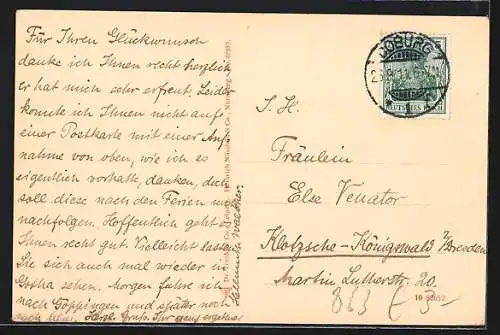 Für Ihren Glückwunsch
danke ich Ihnen recht herzlich
er hat mich sehr erfreut. Leider
konnte ich Ihnen nicht auf
einer Postkarte mit einer Auf-
nahme von oben, wie ich es
eigentlich vorhatte, danken, doch
soll diese nach den Ferien nun
nachfolgen. Hoffentlich geht es
Ihnen recht gut. Vielleicht lassen
Sie sich auch mal wieder in
Gotha sehen. Morgen fahre ich
nach Göppingen und später noch
Herzl. Gruß Ihr ganz ergebener
COBURG
DEUTSCHES REICH
S. H.
Fräulein
Else Venator
Klotzsche-Königswald b/Dresden
Martin Lutherstr. 20.
10 52052